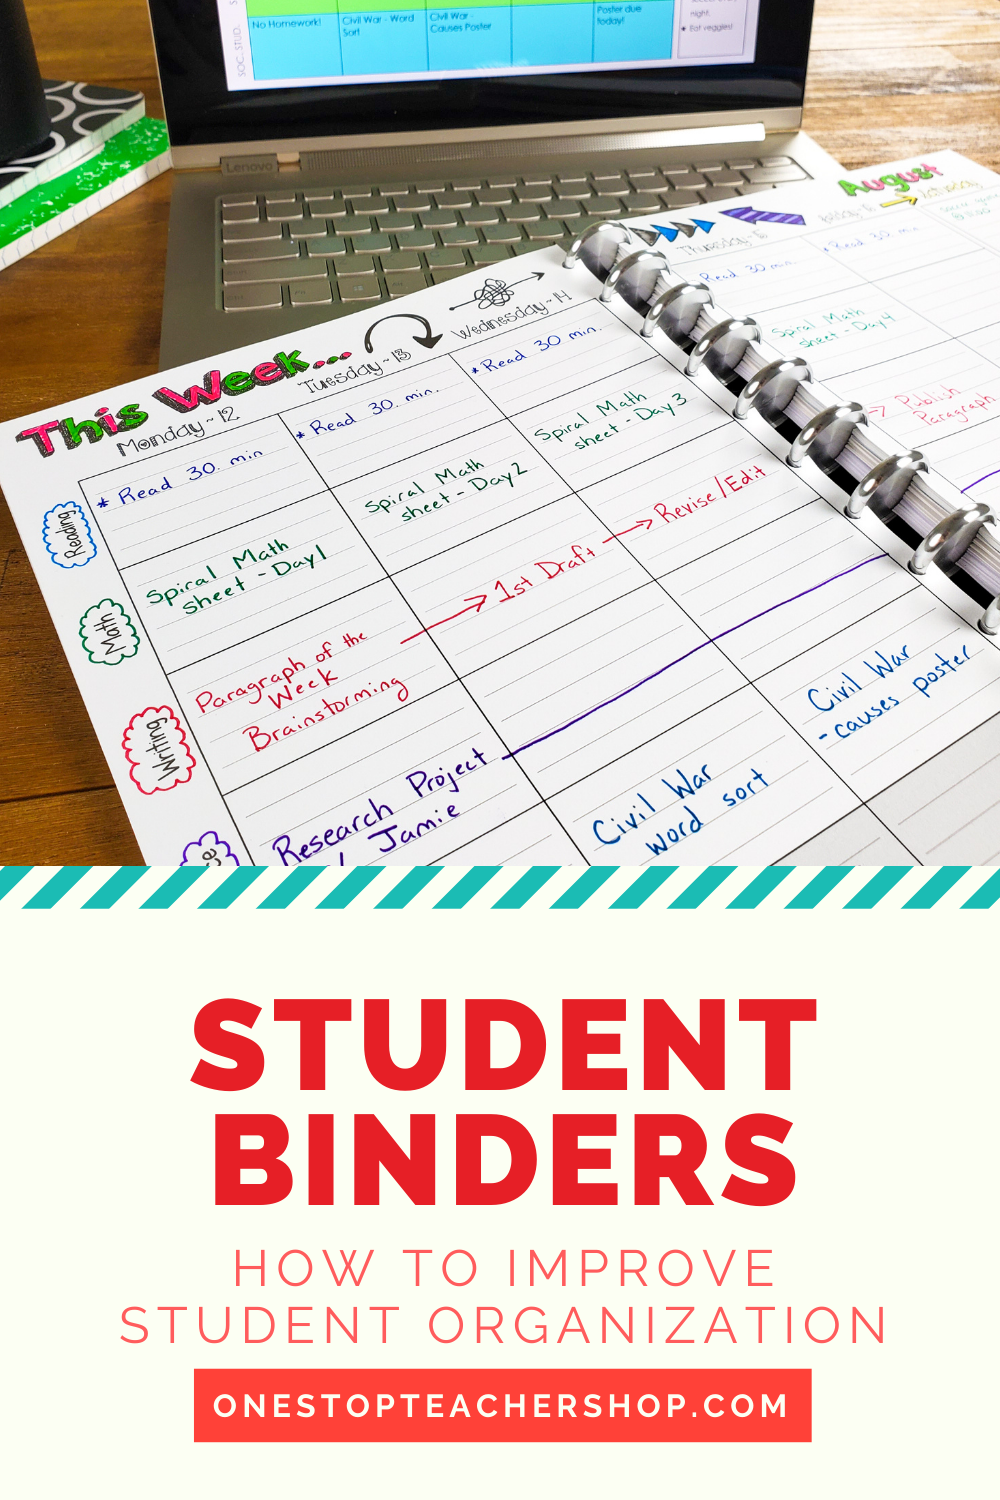 SOC. STUD.
No Homework!
Civil War - Word
Sort
Civil War -
Causes Poster
Poster due
today!
night.
Eat veggies!
Lenovo
August
This Week...
Monday ~ 12
Tuesday ~ 13
Wednesday ~ 14
Thursday ~ 15
Reading
* Read 30. min
* Read 30. min.
* Read 30 min.
Read 30 min.
* Read 30 min.
Math
Spiral Math
sheet - Day 1
Spiral Math
sheet - Day 2
Spiral Math
sheet - Day 3
Spiral Math
sheet - Day 4
Writing
Paragraph of the
Week
Brainstorming
1st Draft
Revise/Edit
Publish
Paragraph
Research Project
Jamie
Civil War
word sort
Civil War
- causes poster
STUDENT
BINDERS
HOW TO IMPROVE
STUDENT ORGANIZATION
ONESTOPTEACHERSHOP.COM